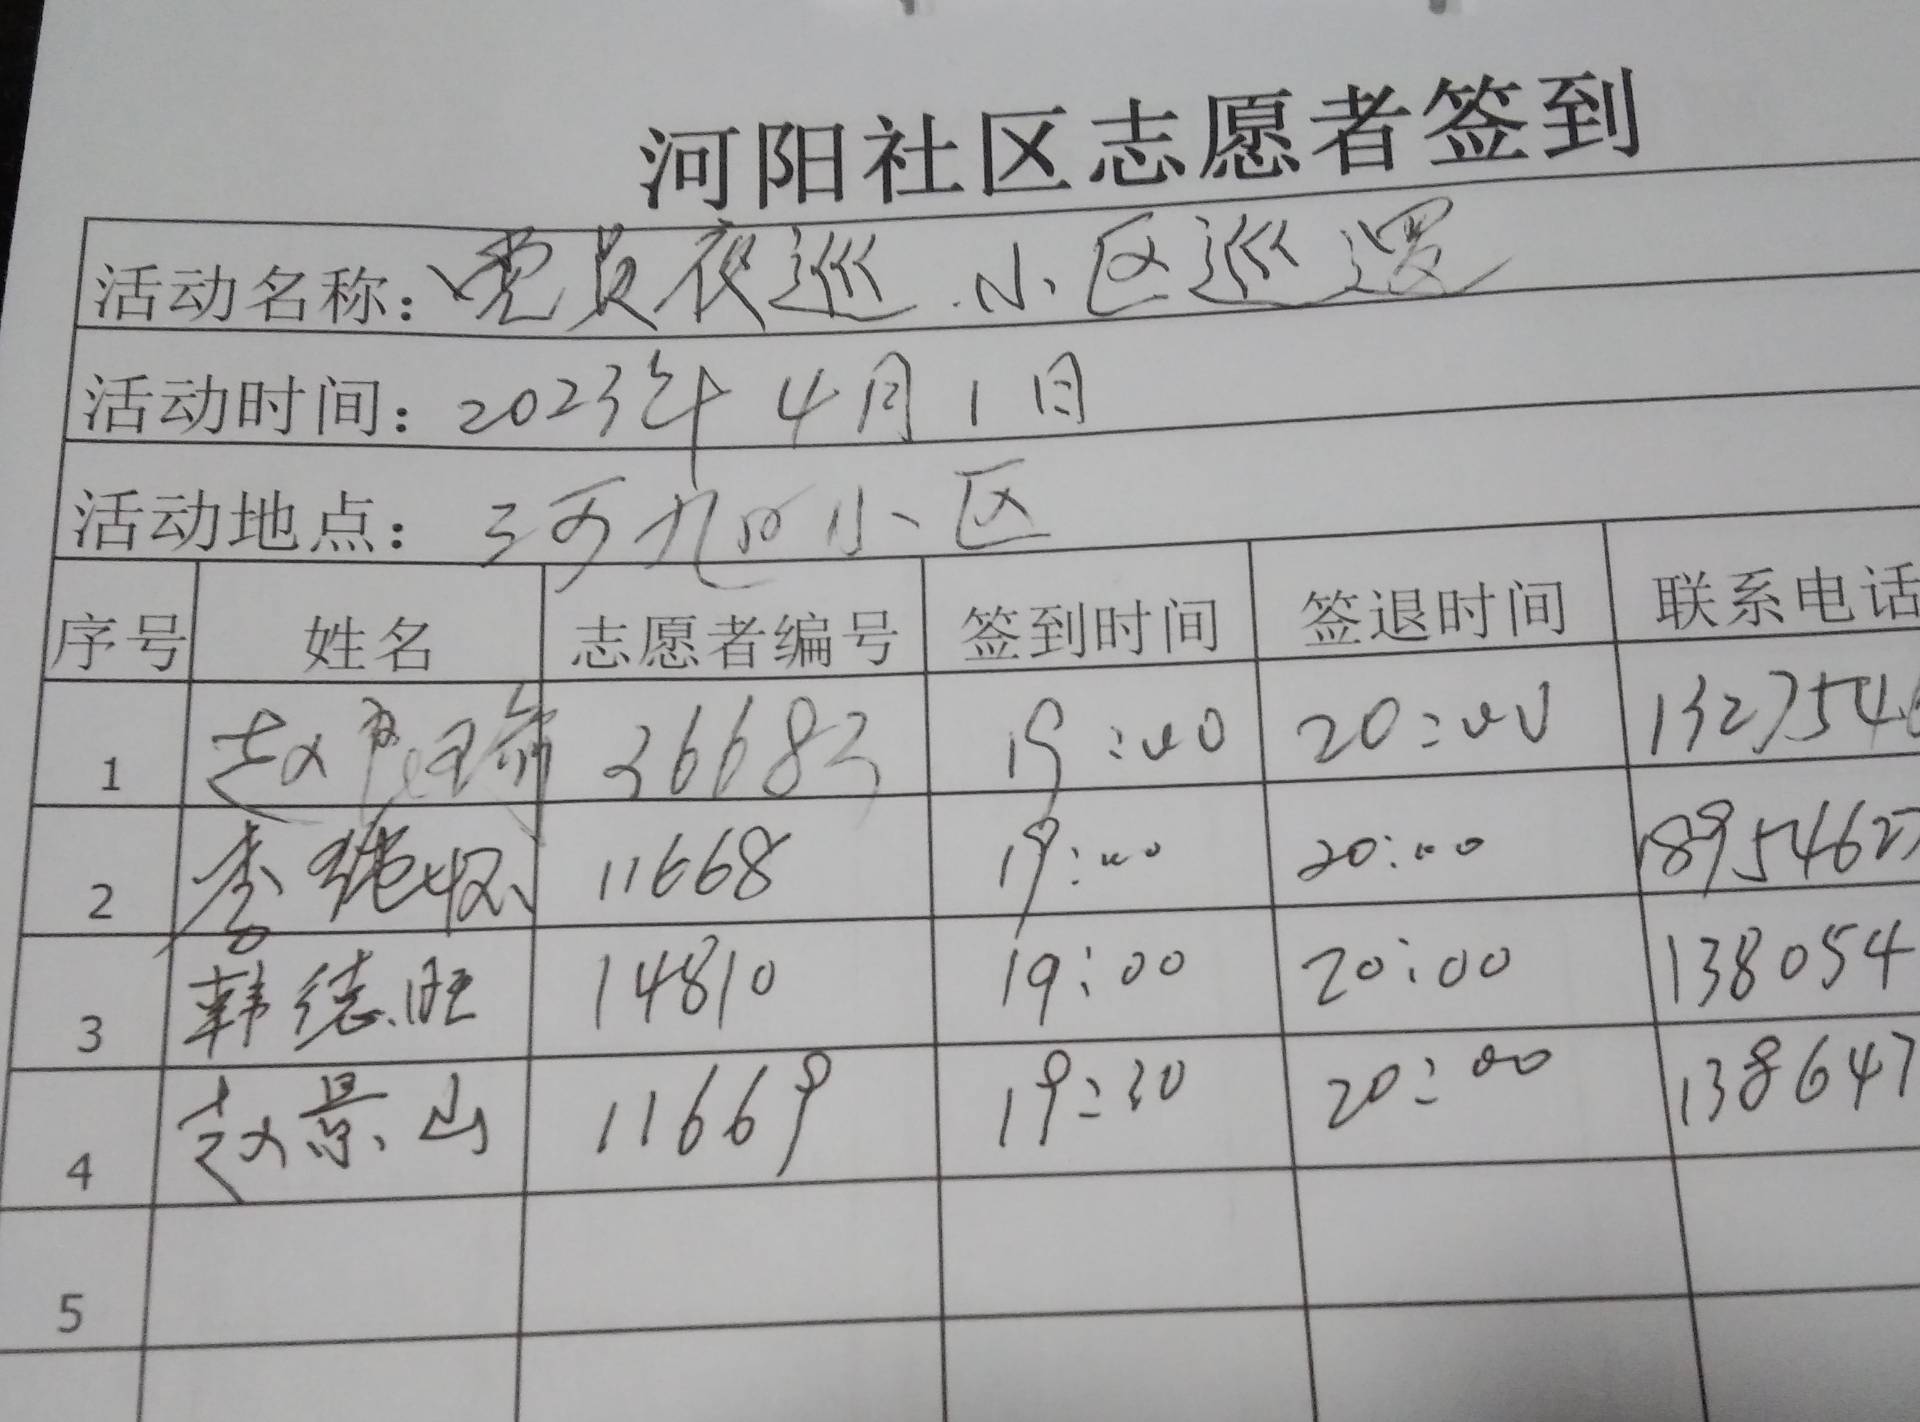 河阳社区志愿者签到
活动名称：党员夜巡 小区巡逻
活动时间：2023年4月1日
活动地点：小区
序号 姓名 志愿者编号 签到时间 签退时间 联系电话
1 赵 36683 19:00 20:00 1327546
2 李 11668 19:00 20:00 1895462
3 韩德旺 14810 19:00 20:00 138054
4 赵景山 11669 19:30 20:00 138647
5